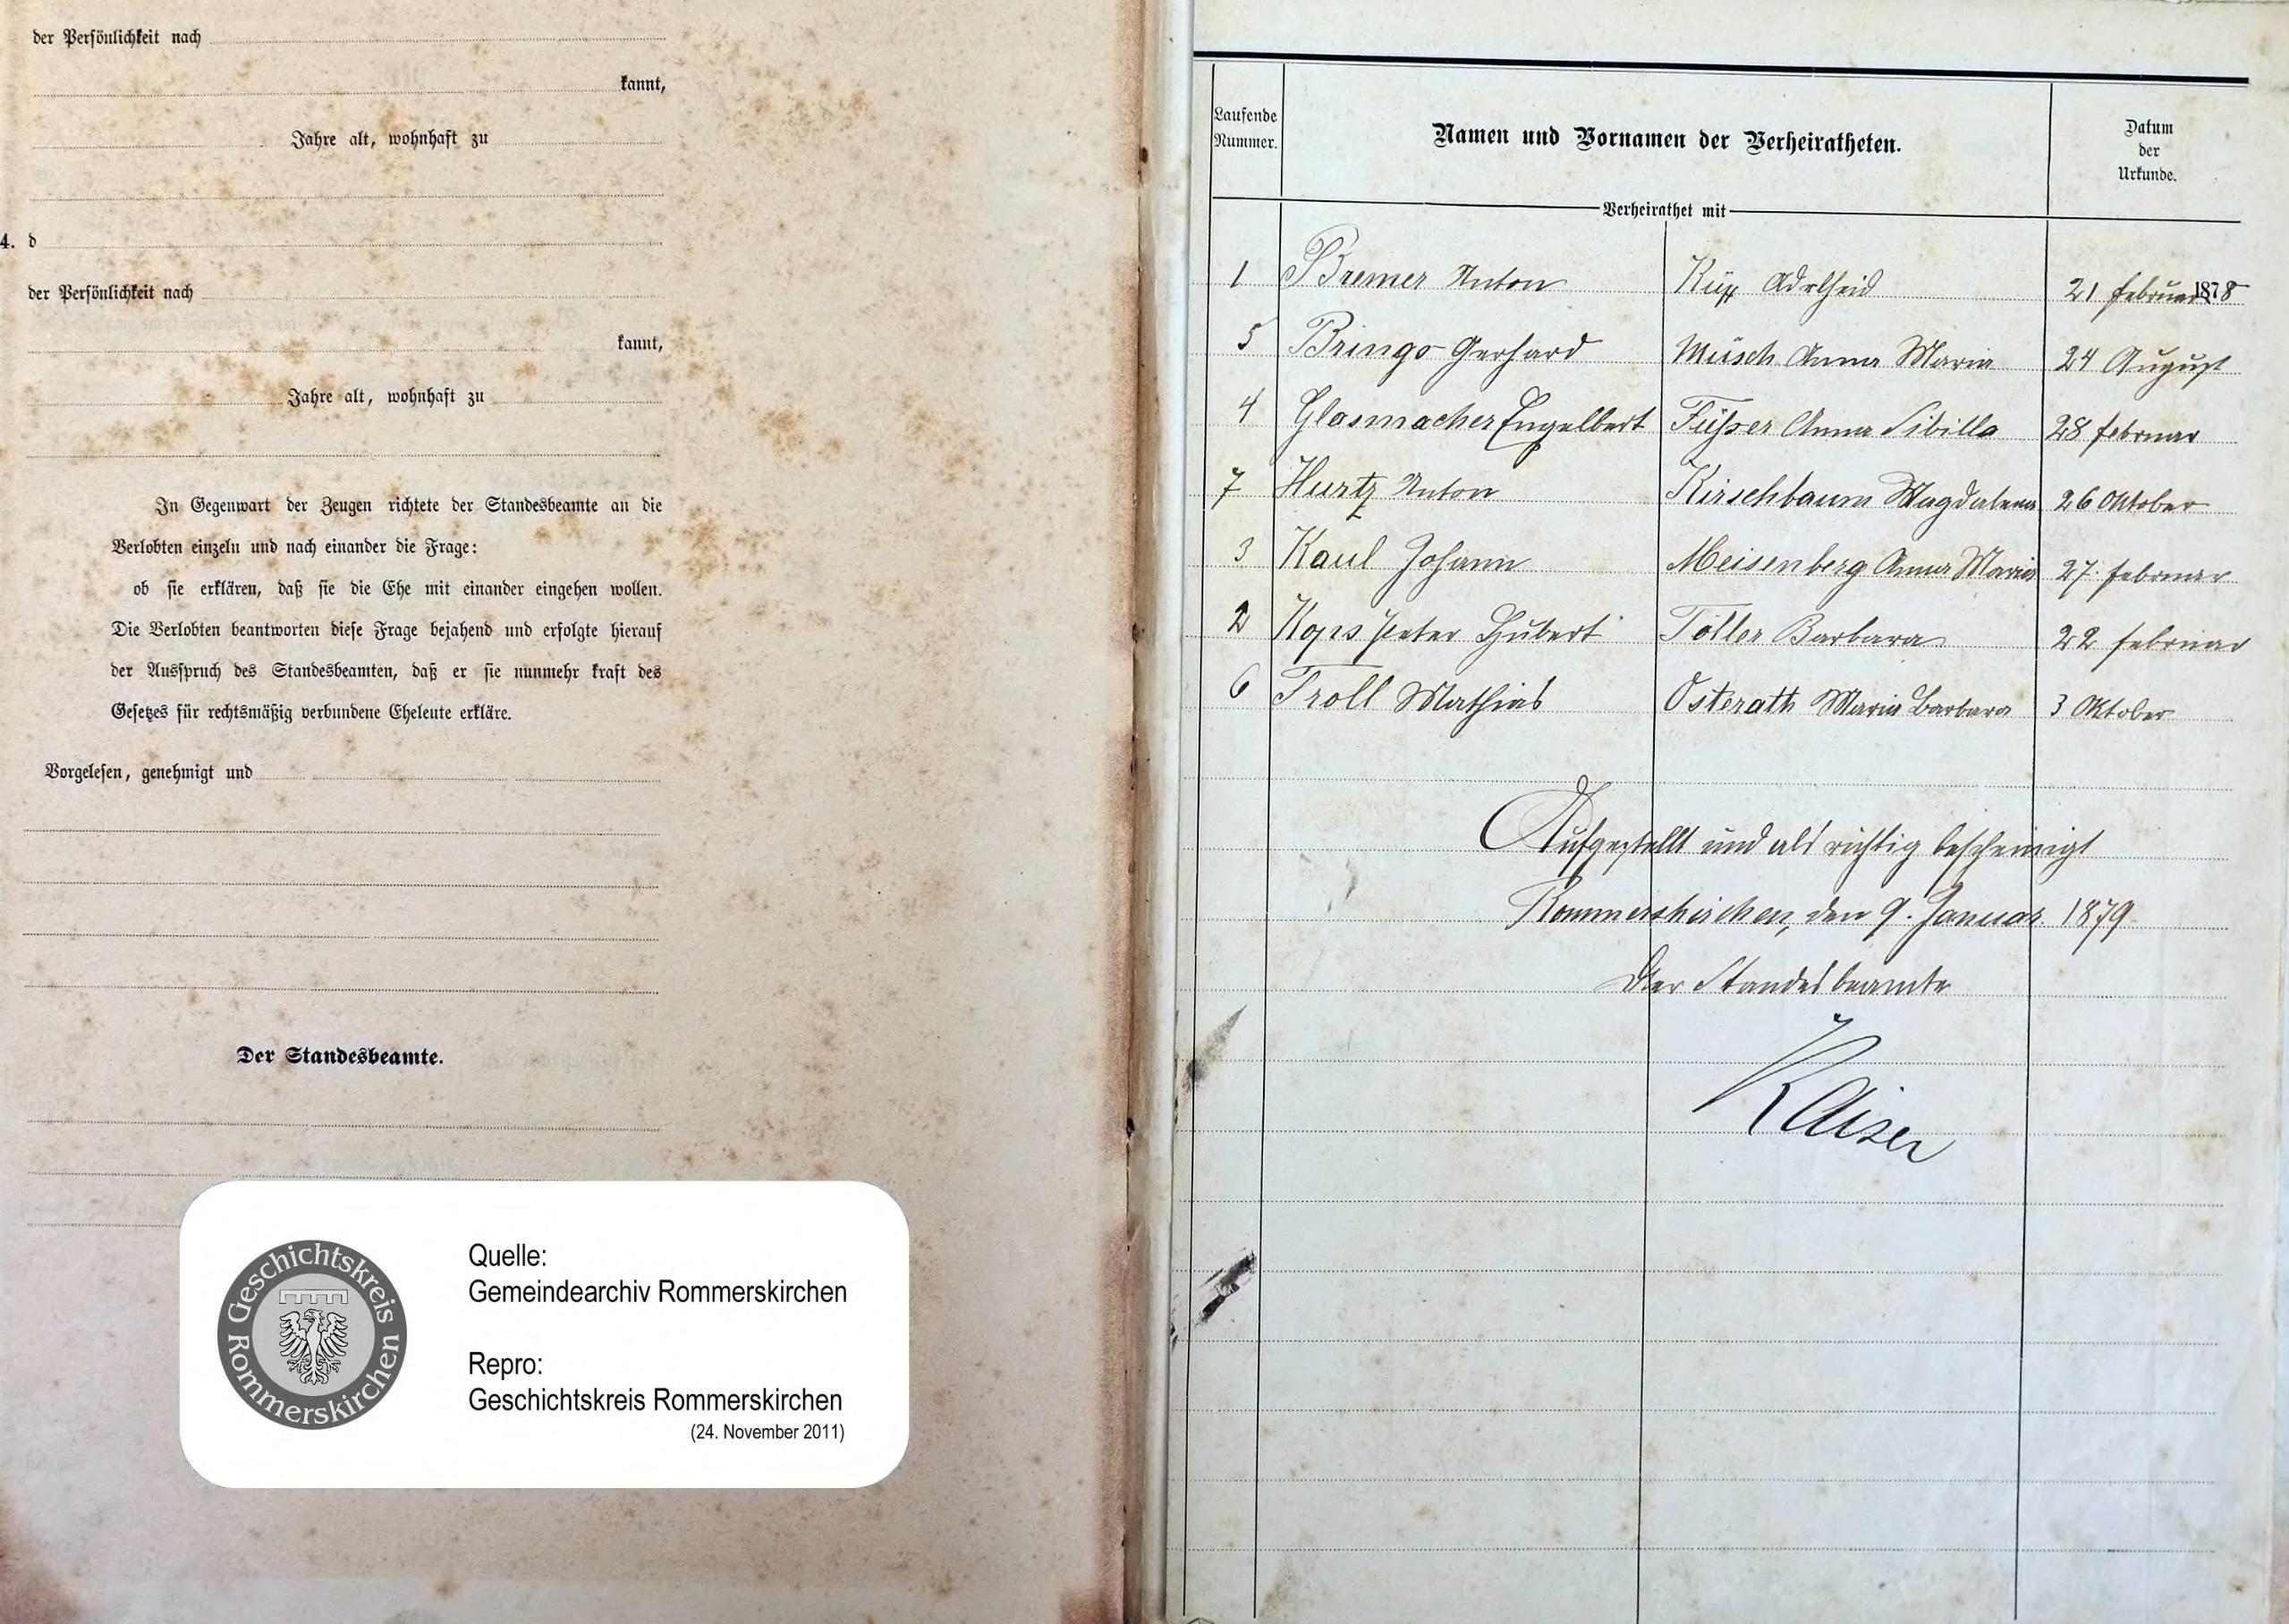 der Persönlichkeit nach
kannt,
Jahre alt, wohnhaft zu
4. d
der Persönlichkeit nach
kannt,
Jahre alt, wohnhaft zu
In Gegenwart der Zeugen richtete der Standesbeamte an die
Verlobten einzeln und nach einander die Frage:
ob sie erklären, daß sie die Ehe mit einander eingehen wollen.
Die Verlobten beantworten diese Frage bejahend und erfolgte hierauf
der Ausspruch des Standesbeamten, daß er sie nunmehr kraft des
Gesetzes für rechtsmäßig verbundene Eheleute erkläre.
Vorgelesen, genehmigt und
Der Standesbeamte.
Geschichtskreis Rommerskirchen
Quelle:
Gemeindearchiv Rommerskirchen
Repro:
Geschichtskreis Rommerskirchen
(24. November 2011)
Laufende Nummer.
Namen und Vornamen der Verheiratheten.
Datum der Urkunde.
Verheirathet mit
1 Bremer Anton Adelheid 21 Februar 1878
5 Brings Gerhard Müsch Anna Maria 24 August
4 Glasmacher Engelbert Füsser Anna Sibilla 28 Februar
7 Hurtz Anton Kirschbaum Magdalena 26 Oktober
3 Kaul Johann Meisenberg Anna Maria 27. Februar
2 Kops Peter Hubert Töller Barbara 22 Februar
6 Troll Mathias Osterath Maria Barbara 3 Oktober
Aufgestellt und als richtig bescheinigt
Rommerskirchen, den 9. Januar 1879
Der Standesbeamte
Kaiser